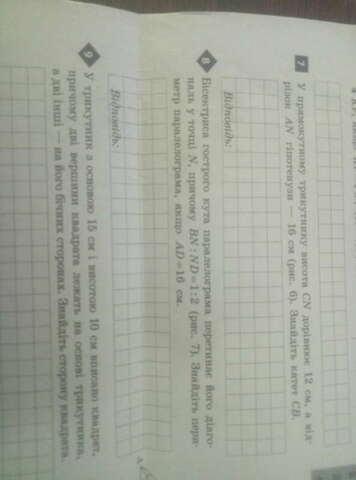 7 У прямокутному трикутнику висота CN дорівнює 12 см, а від-
різок AN гіпотенузи — 16 см (рис. 6). Знайдіть катет CB.
Відповідь:
8 Бісектриса гострого кута паралелограма перетинає його діаго-
наль у точці N, причому BN : ND = 1 : 2 (рис. 7). Знайдіть пери-
метр паралелограма, якщо AD = 16 см.
Відповідь:
9 У трикутник з основою 15 см і висотою 10 см вписано квадрат,
причому дві вершини квадрата лежать на основі трикутника,
а дві інші — на його бічних сторонах. Знайдіть сторону квадрата.
A